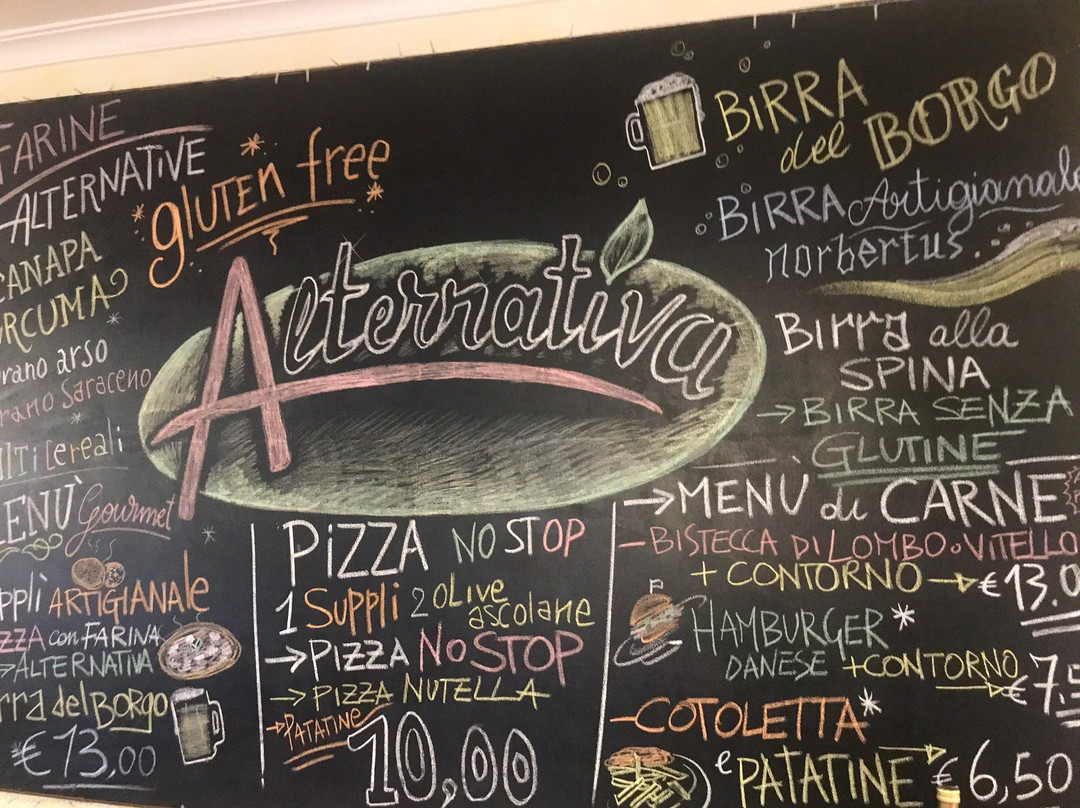 FARINE
ALTERNATIVE
CANAPA
arso
Saraceno
Cereali
gluten free
Alternativa
BIRRA
del BORGO
BIRRA Artigianale
norbertus.
Birra alla
SPINA
→ BIRRA SENZA
GLUTINE
MENÙ Gourmet
ARTIGIANALE
con FARINA
→ ALTERNATIVA
del BORGO
*€ 13,00
PIZZA NO STOP
1 Supplì 2 OLIVE
ascolane
→ PIZZA NO STOP
→ PIZZA NUTELLA
→ PATATINE
10,00
→ MENÙ di CARNE
- BISTECCA DI LOMBO o VITELLO
+ CONTORNO → € 13.0
HAMBURGER*
DANESE + CONTORNO
→ € 7,5
- COTOLETTA*
e PATATINE → € 6,50